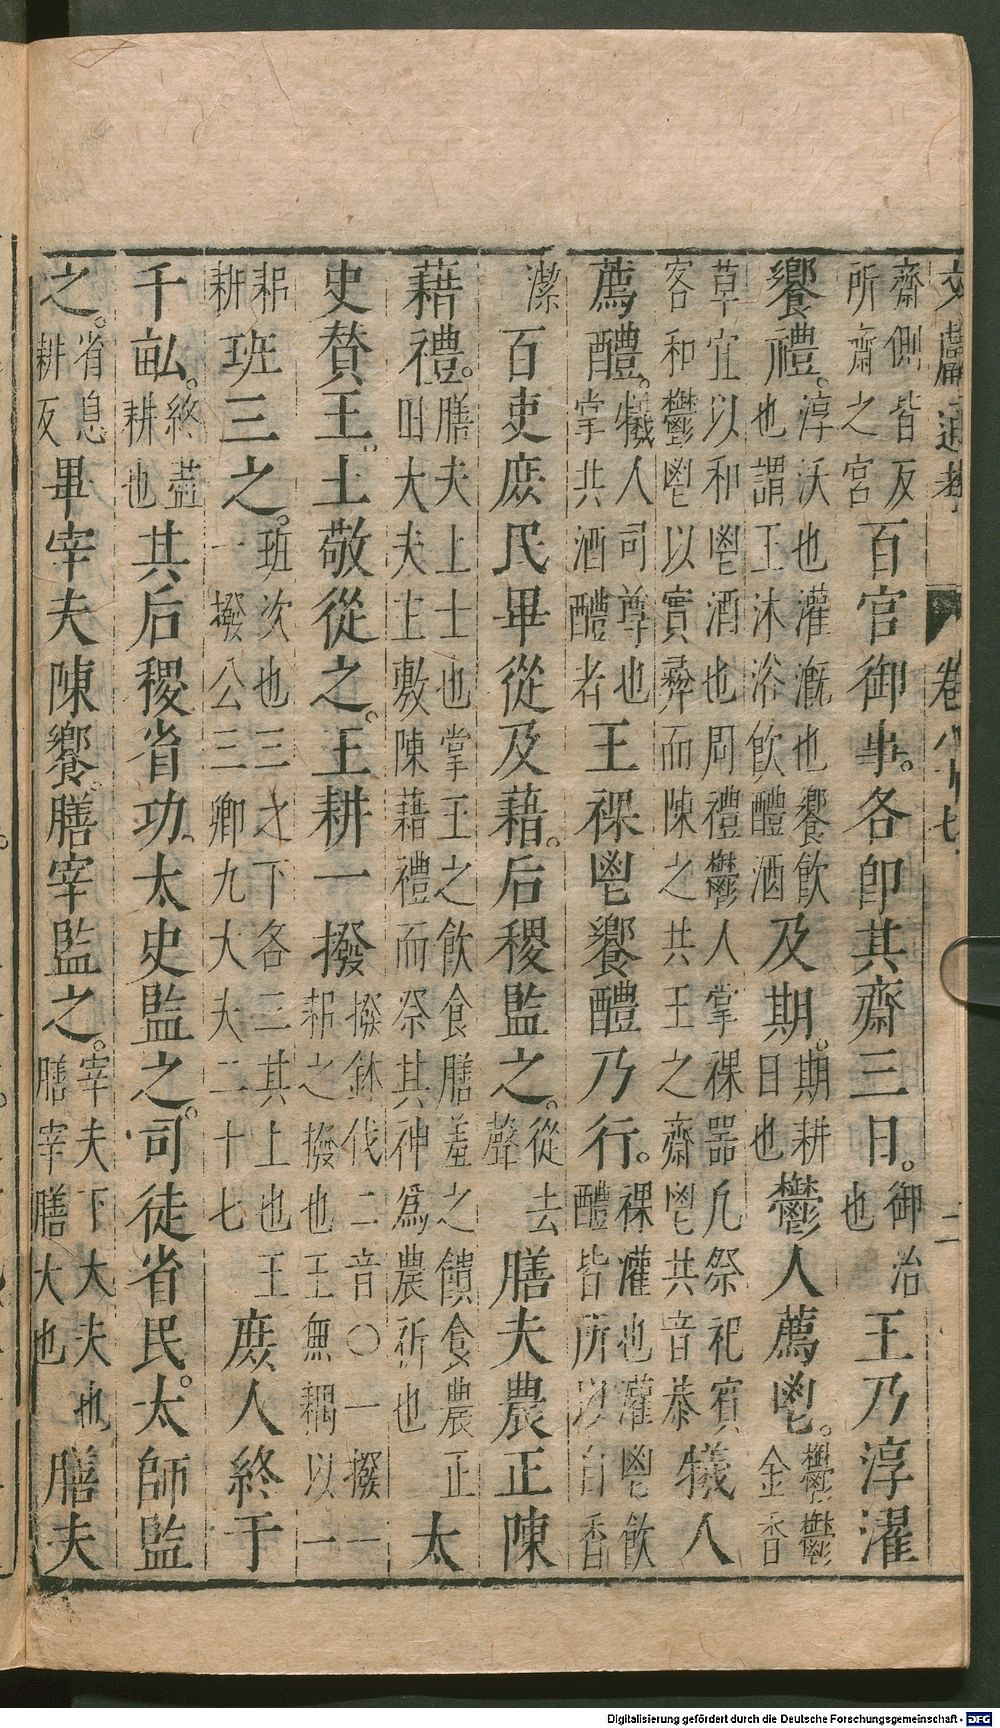 文獻通考 卷八十七 二
齋側皆反所齋之宮百官御事。各卽其齋三日。御治也王乃淳濯
饗禮。淳沃也灌漑也饗飲也謂王沐浴飲醴酒及期。期耕日也鬱人薦鬯。鬱鬱金香
草宜以和鬯酒也周禮鬱人掌祼器凡祭祀賓客和鬱鬯以實彝而陳之共王之齋鬯共音恭犧人
薦醴。犧人司尊也掌共酒醴者王祼鬯饗醴乃行。祼灌也灌鬯飲醴皆所以自香
潔百吏庶民畢從及藉。后稷監之。從去聲膳夫農正陳
藉禮。膳夫上士也掌王之飲食膳羞之饋食農正田大夫主敷陳藉禮而祭其神爲農祈也太
史賛王。王敬從之。王耕一撥撥鉢伐二音〇一撥一耜之撥也王無耦以一
耜耕班三之。班次也三之下各三其上也王一撥公三卿九大夫二十七庶人終于
千畝。終盡耕也其后稷省功。太史監之。司徒省民。太師監
之。省息耕反畢宰夫陳饗。膳宰監之。宰夫下大夫也膳宰膳大也膳夫
Digitalisierung gefördert durch die Deutsche Forschungsgemeinschaft - DFG